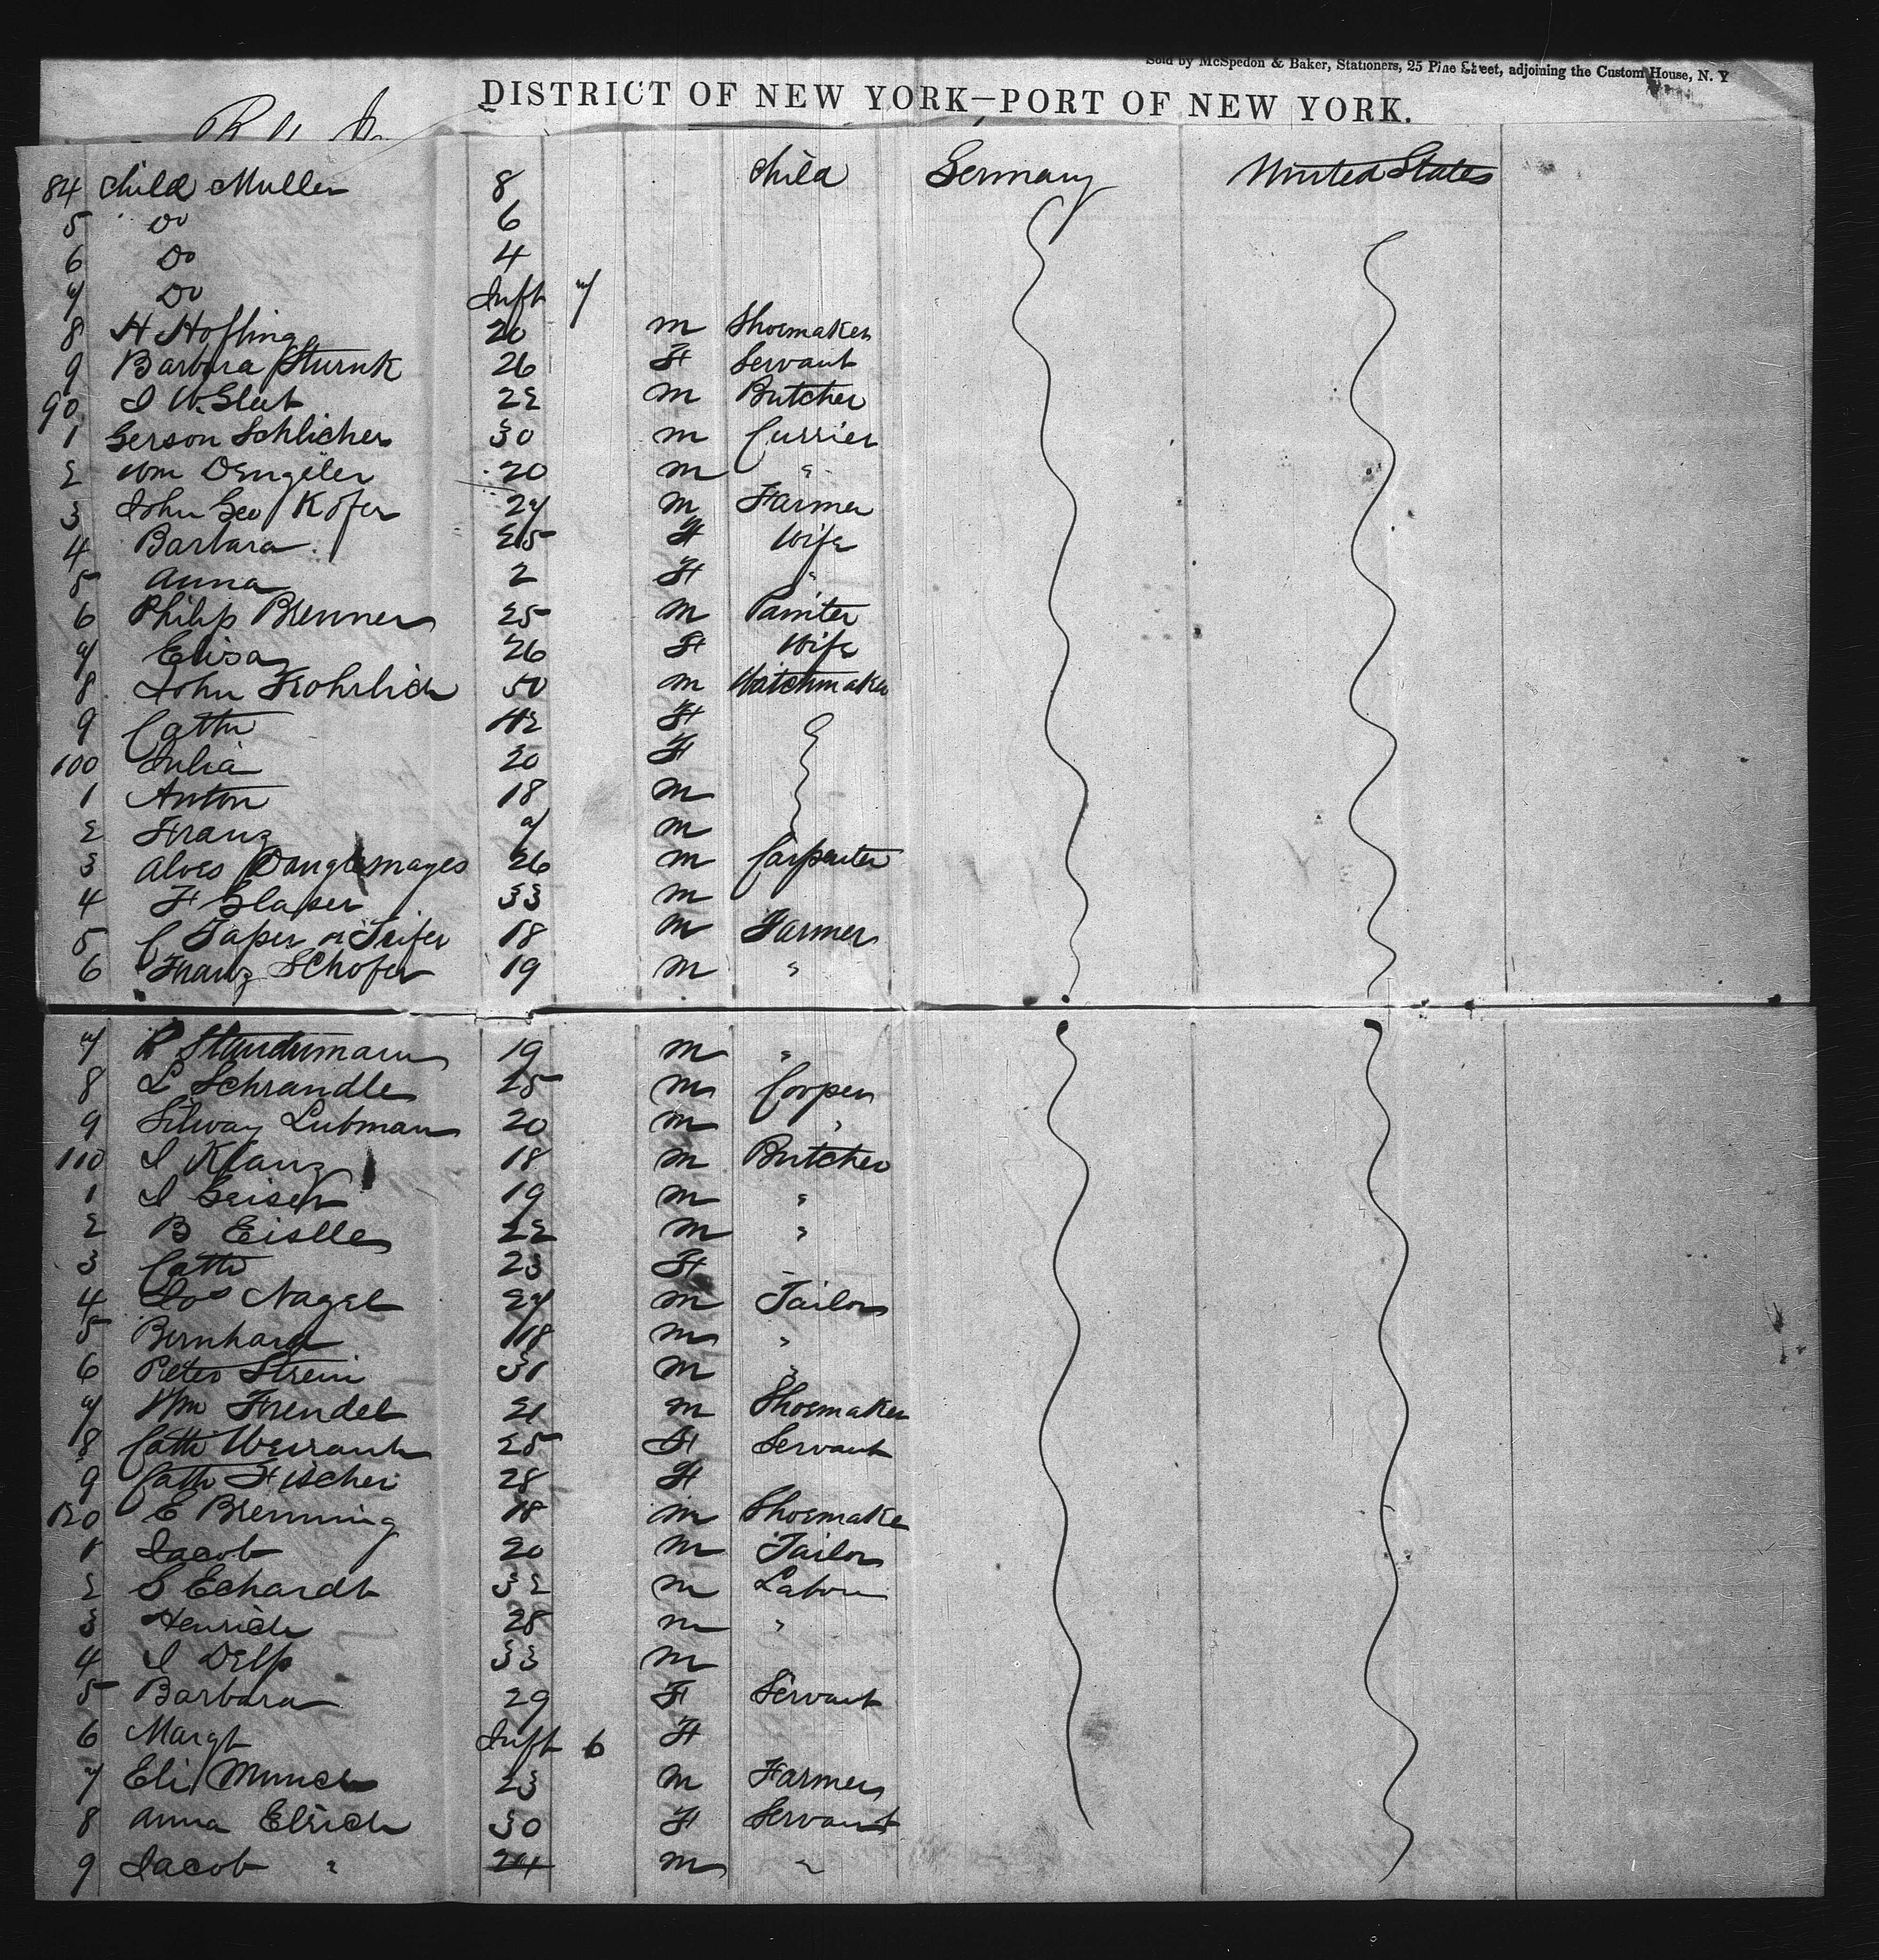 Sold by McSpedon & Baker, Stationers, 25 Pine Street, adjoining the Custom House, N. Y
DISTRICT OF NEW YORK—PORT OF NEW YORK.
84 Child Muller 8 Child Germany United States
5 Do 6
6 Do 4
7 Do Inft 7
8 H Hofling 20 m Shoemaker
9 Barbara Sturnk 26 F Servant
90 I W. Gleet 22 m Butcher
1 Gerson Schlicher 30 m Currier
2 Wm Dengeler 20 m "
3 John Geo Kofer 27 m Farmer
4 Barbara 25 F Wife
5 Anna 2 F "
6 Philip Brenner 25 m Painter
7 Elisa 26 F Wife
8 John Frohrlich 50 m Watchmaker
9 Cathr 42 F
100 Julia 20 F
1 Anton 18 m
2 Franz 7 m
3 Alois 26 m Carpenter
4 F Glaser 33 m
5 C Taper or Trifer 18 m Farmer
6 Franz Schofer 19 m "
7 19 m "
8 L Schrandle 25 m Cooper
9 Lubman 20 m "
110 I Kranz 18 m Butcher
1 I Geiser 19 m "
2 B Eislle 22 m "
3 Cath 23 F
4 Jos Nagel 27 m Tailor
5 Bernhard 18 m "
6 Peter Strein 31 m "
7 Wm Frendel 21 m Shoemaker
8 Cath 25 F Servant
9 Cath Fischer 28 F
120 E Brenning 18 m Shoemake
1 Jacob 20 m Tailor
2 S Echardt 32 m Labou
3 Henrich 28 m "
4 I Delp 33 m
5 Barbara 29 F Servant
6 Margt Inft 6 F
7 Eli Munch 23 m Farmer
8 Anna Elrich 30 F Servant
9 Jacob " 24 m "